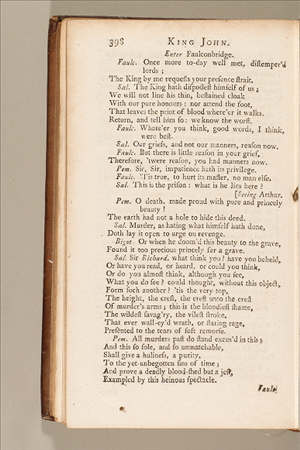 398 KING JOHN.
Enter Faulconbridge.
Faulc. Once more to-day well met, distemper'd
lords ;
The King by me requests your presence strait.
Sal. The King hath dispossest himself of us ;
We will not line his thin, bestained cloak
With our pure honours : nor attend the foot,
That leaves the print of blood where'er it walks.
Return, and tell him so : we know the worst.
Faulc. Whate'er you think, good words, I think,
were best.
Sal. Our griefs, and not our manners, reason now.
Faulc. But there is little reason in your grief,
Therefore, 'twere reason, you had manners now.
Pem. Sir, Sir, impatience hath its privilege.
Faulc. 'Tis true, to hurt its master, no man else.
Sal. This is the prison : what is he lies here ?
[Seeing Arthur.
Pem. O death, made proud with pure and princely
beauty !
The earth had not a hole to hide this deed.
Sal. Murder, as hating what himself hath done,
Doth lay it open to urge on revenge.
Bigot. Or when he doom'd this beauty to the grave,
Found it too precious princely for a grave.
Sal. Sir Richard, what think you ? have you beheld,
Or have you read, or heard, or could you think,
Or do you almost think, although you see,
What you do see ? could thought, without this object,
Form such another ? 'tis the very top,
The height, the crest, the crest unto the crest
Of murder's arms ; this is the bloodiest shame,
The wildest savag'ry, the vilest stroke,
That ever wall-ey'd wrath, or staring rage,
Presented to the tears of soft remorse.
Pem. All murders past do stand excus'd in this ;
And this so sole, and so unmatchable,
Shall give a holiness, a purity,
To the yet-unbegotten sins of time ;
And prove a deadly blood-shed but a jest,
Exampled by this heinous spectacle.
Faulc.